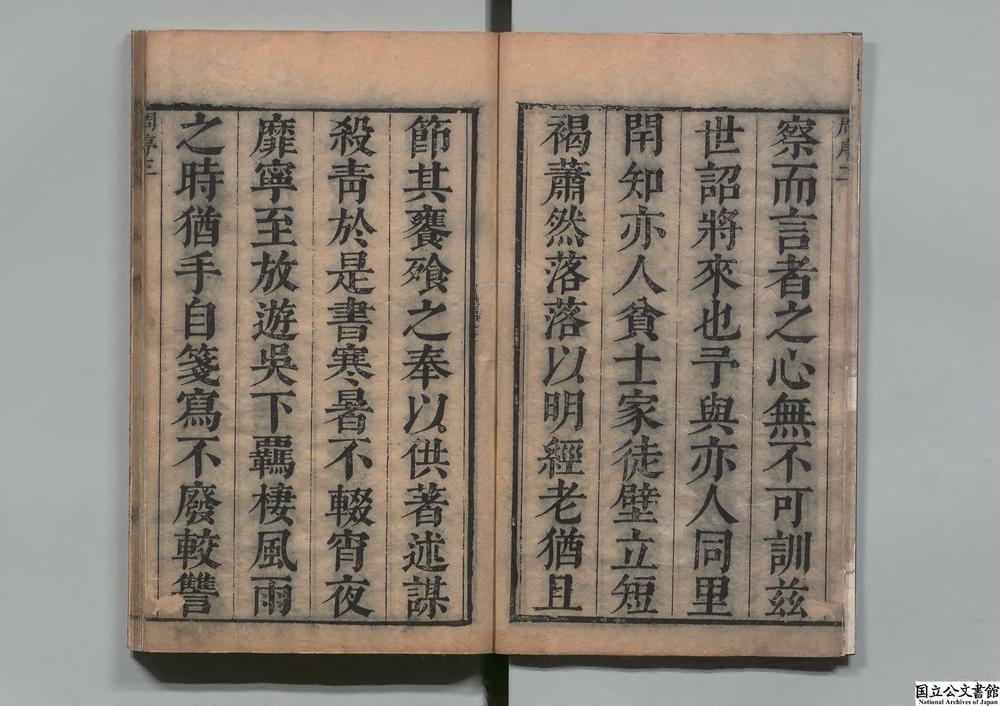 察而言者之心無不可訓茲
世詔將來也予與亦人同里
閈知亦人貧士家徒壁立短
褐蕭然落落以明經老猶且
節其饔飧之奉以供著述謀
殺青於是書寒暑不輟宵夜
靡寧至放遊吳下羈棲風雨
之時猶手自箋寫不廢較讐
国立公文書館
National Archives of Japan